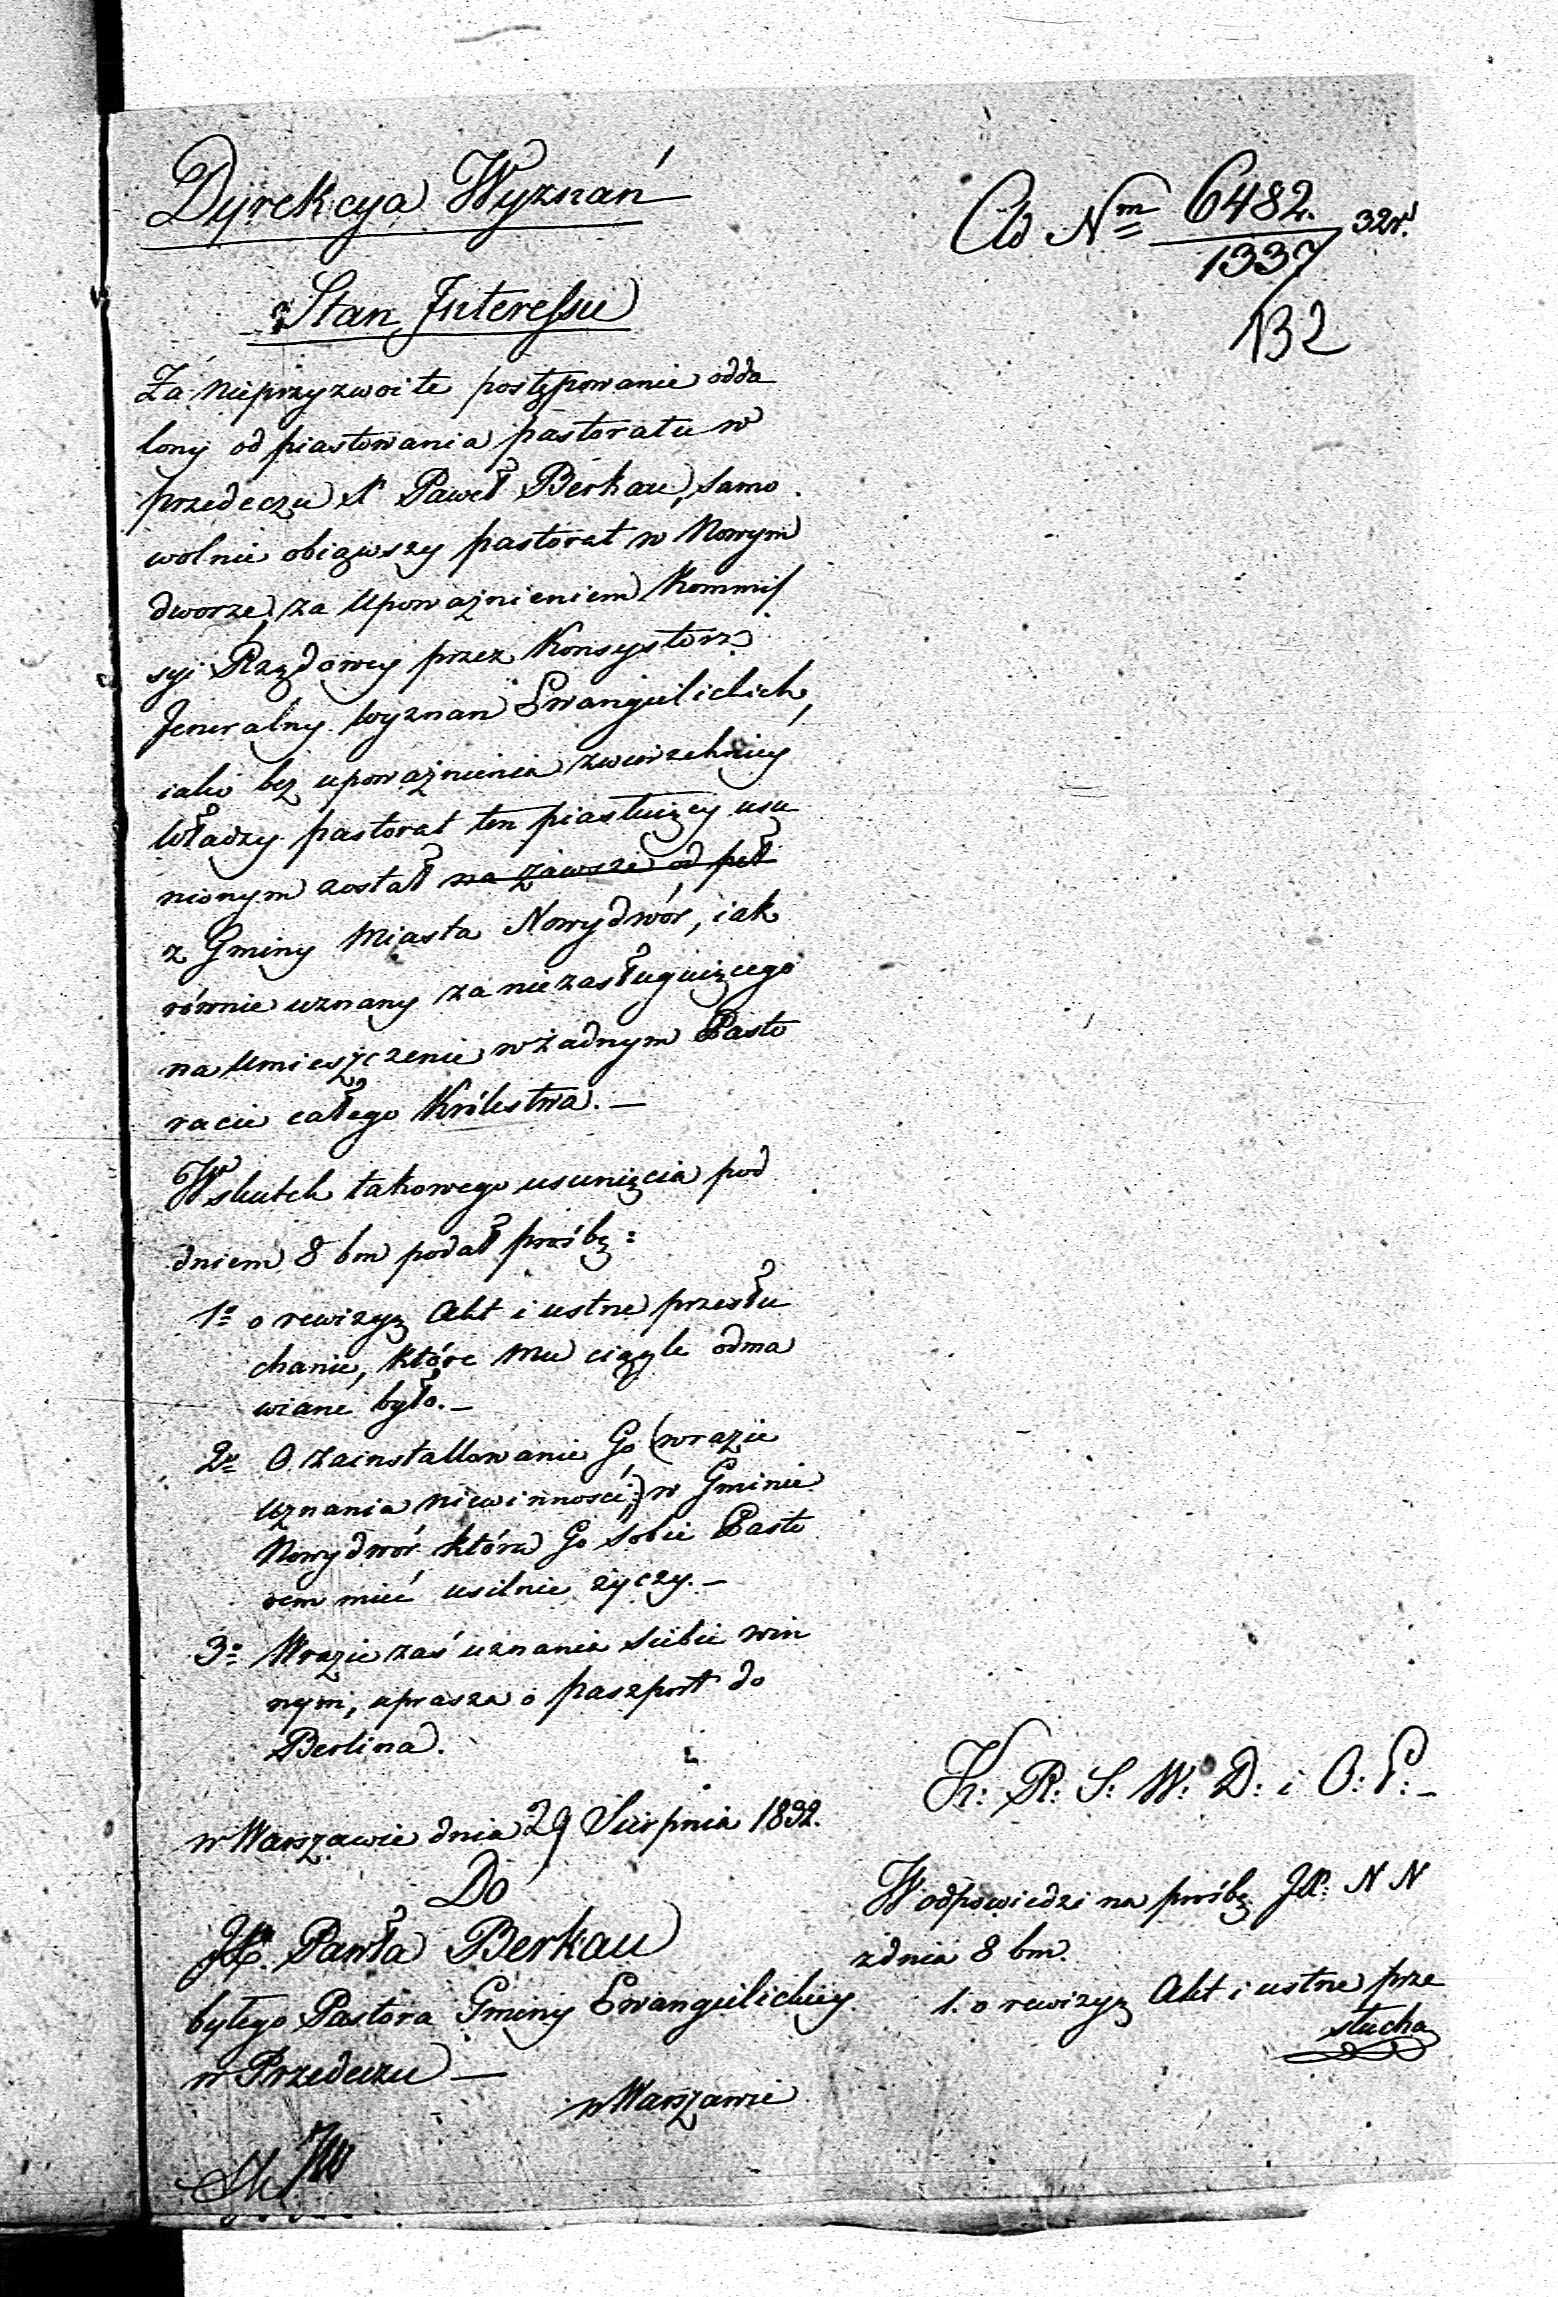 Dyrekcya Wyznań
Ad Nm 6482. 32 r.
1337
132
Stan Interessu
Za nieprzyzwoite postępowanie odda
lony od piastowania pastoratu w
przedeczu X Paweł Berkau, samo
wolnie obiąwszy pastorat w Nowym
dworze, za upoważnieniem Kommis
syi Rządowey przez Konsystorz
Jeneralny wyznań Ewangielickich,
iako bez upoważnienia zwierzchniey
Władzy pastorat ten piastuiący usu
nionym został na zawsze od peł
z Gminy Miasta Nowydwór, iak
równie uznany za niezasługuiącego
na umieszczenie w żadnym Pasto
racie całego Królestwa. —
W skutek takowego usunięcia pod
dniem 8 bm podał prośbę:
1o o rewizyą Akt i ustne przesłu
chanie, które mu ciągle odma
wiane było. —
2o O zainstallowanie Go (w razie
uznania niewinności) w Gminie
Nowydwór która Go sobie Pasto
rem mieć usilnie życzy. —
3o W razie zaś uznania siebie win
nym, uprasza o paszport do
Berlina.
w Warszawie dnia 29 Sierpnia 1832.
Do
JX. Pawła Berkau
byłego Pastora Gminy Ewangielickiey
w Przedeczu —
w Warszawie
K: R: S: W: D: i O: P: —
W odpowiedzi na prośbę JX: N N
z dnia 8 bm.
1. o rewizyą Akt i ustne prze
słucha